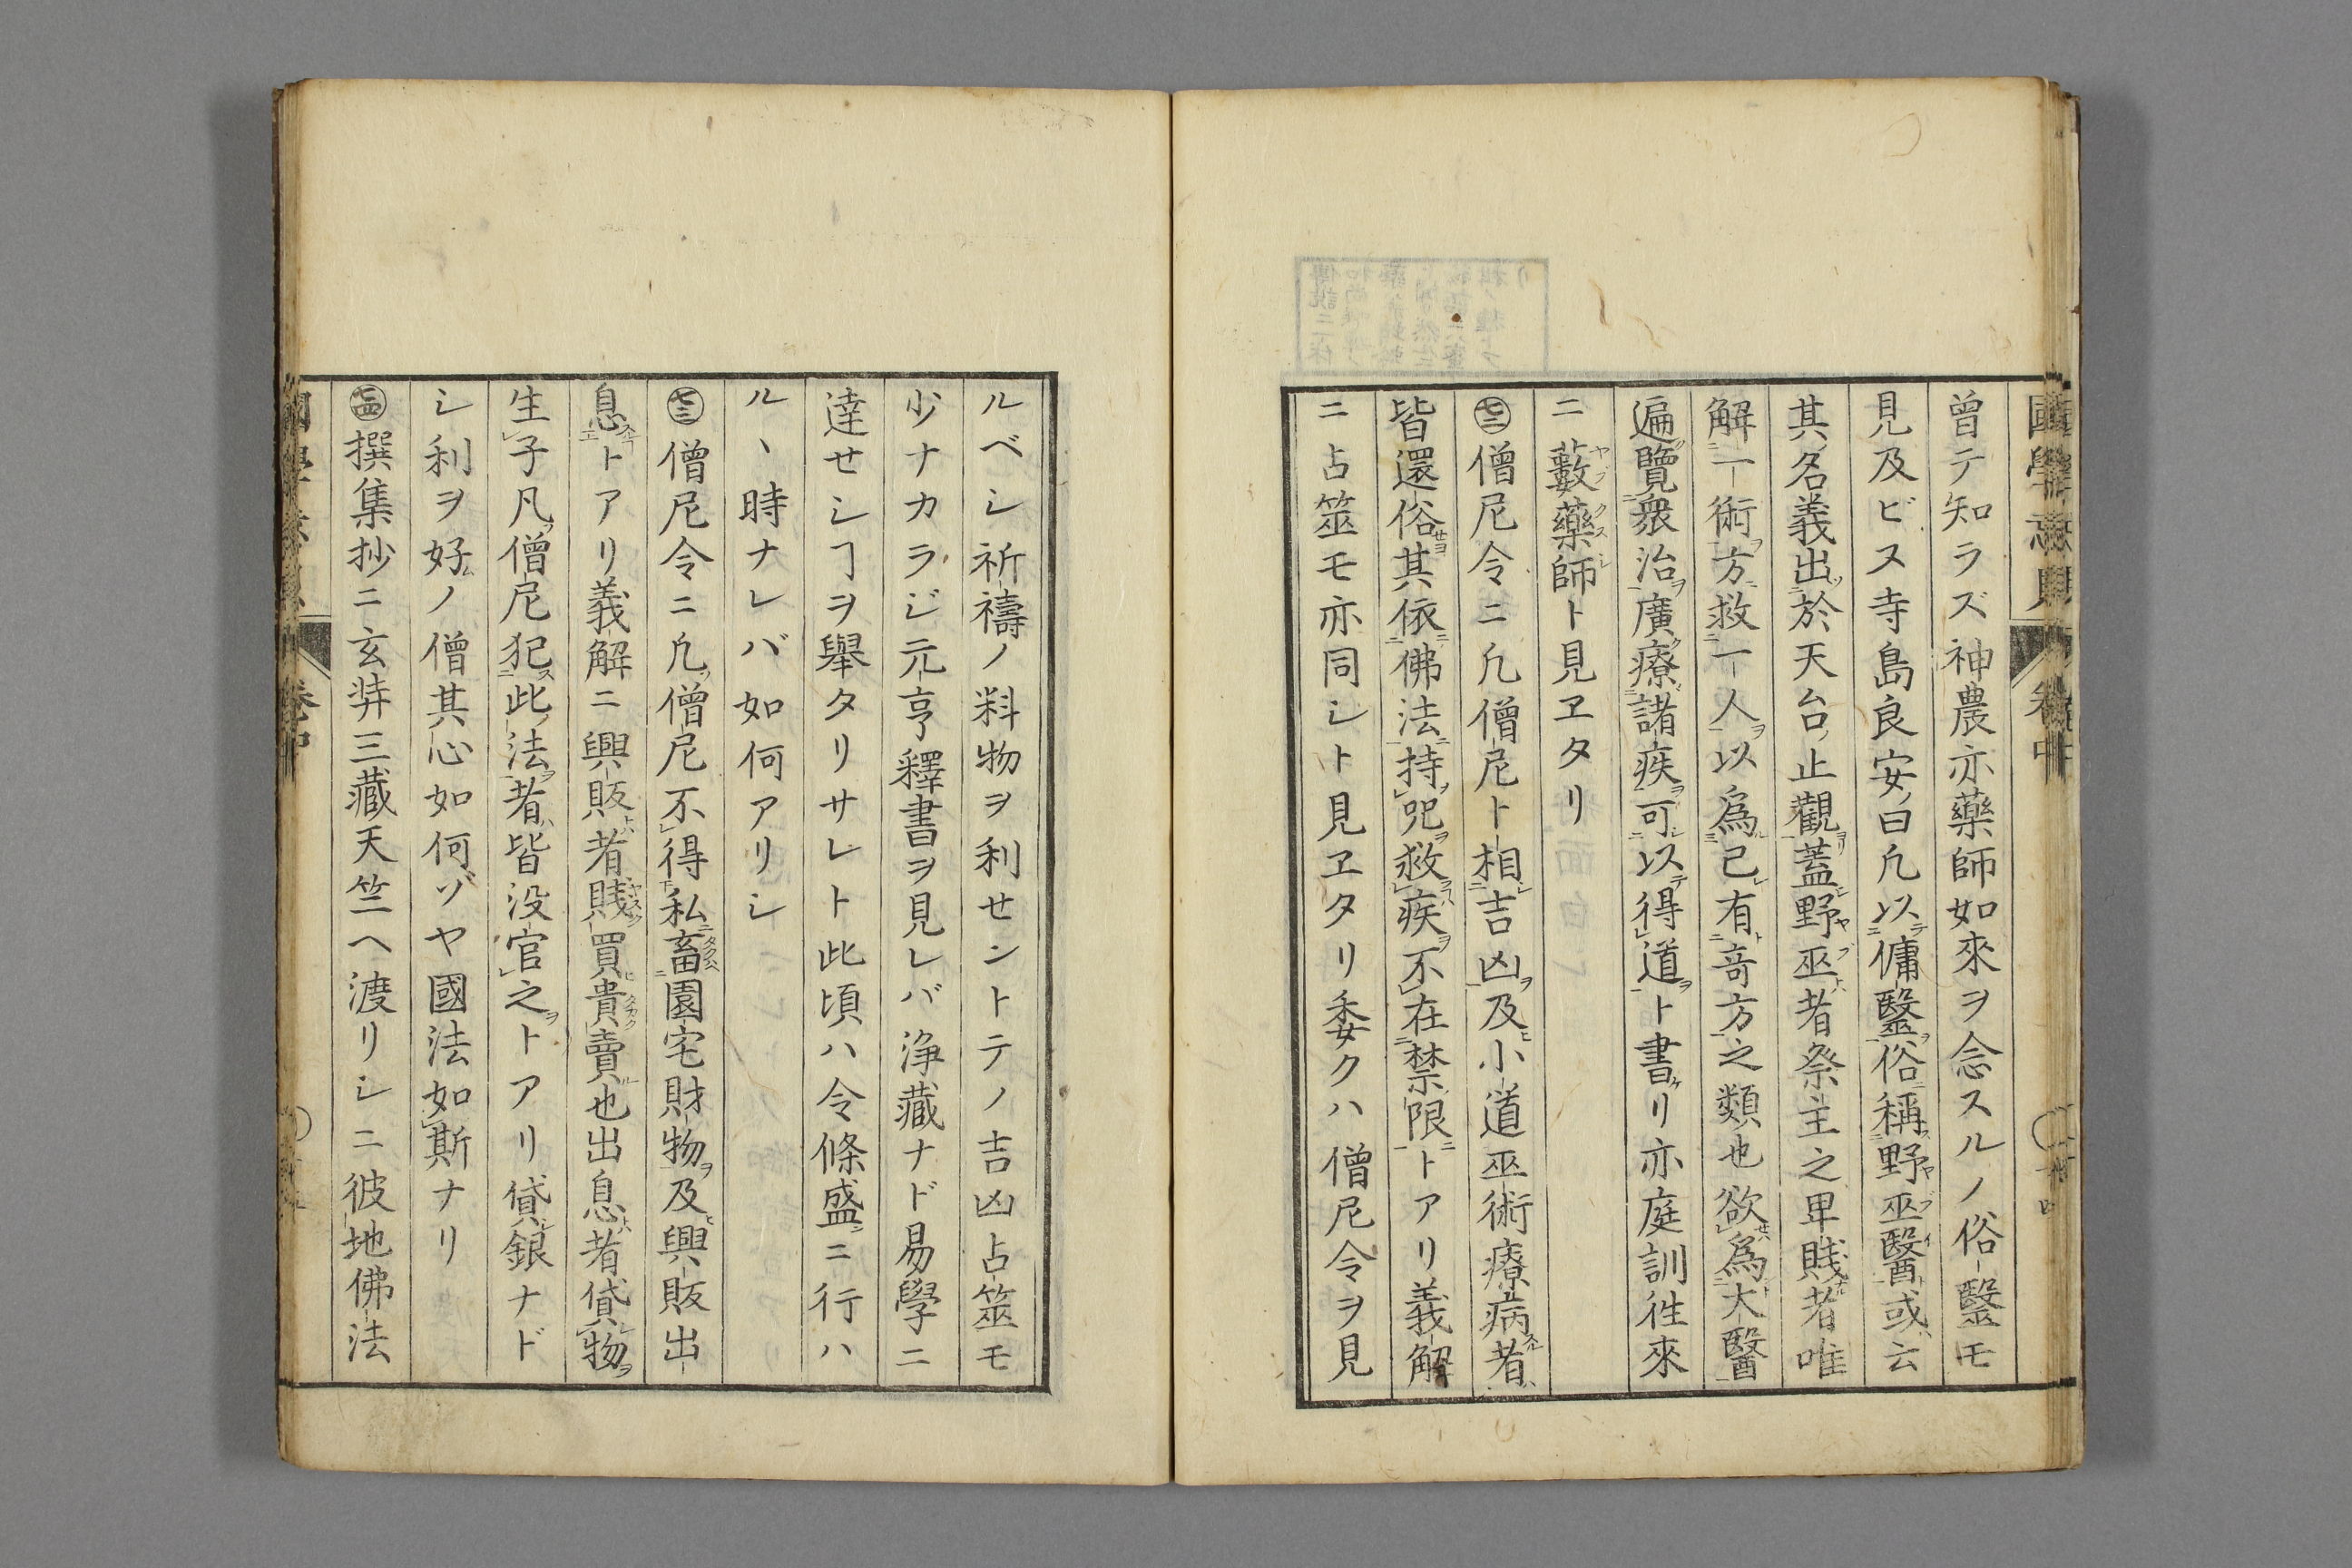 曾テ知ラズ神農亦藥師如來ヲ念スルノ俗醫モ
見及ビヌ寺島良安曰凡以傭醫俗稱野巫醫或云
其名義出於天台止觀蓋野巫者祭主之卑賤者唯
解一術方救一人以爲己有竒方之類也欲爲大醫
遍覽衆治廣療諸疾可以得道ト書リ亦庭訓徃來
ニ藪藥師ト見ヱタリ
㊆二僧尼令ニ凢僧尼ト相吉凶及小道巫術療病者
皆還俗其依佛法持咒救疾不在禁限トアリ義解
ニ占筮モ亦同シト見ヱタリ委クハ僧尼令ヲ見
ルベシ祈禱ノ料物ヲ利せントテノ吉凶占筮モ
少ナカラジ元亨釋書ヲ見レバ浄藏ナド易學ニ
達せシヿヲ舉タリサレト此頃ハ令條盛ニ行ハ
ルヽ時ナレバ如何アリシ
七三僧尼令ニ凢僧尼不得私畜園宅財物及興販出
息トアリ義解ニ興販者賤買貴賣也出息者貸物
生子凡僧尼犯此法者皆没官之トアリ貸銀ナド
シ利ヲ好ノ僧其心如何ゾヤ國法如斯ナリ
七四撰集抄ニ玄弉三藏天竺へ渡リシニ彼地佛法